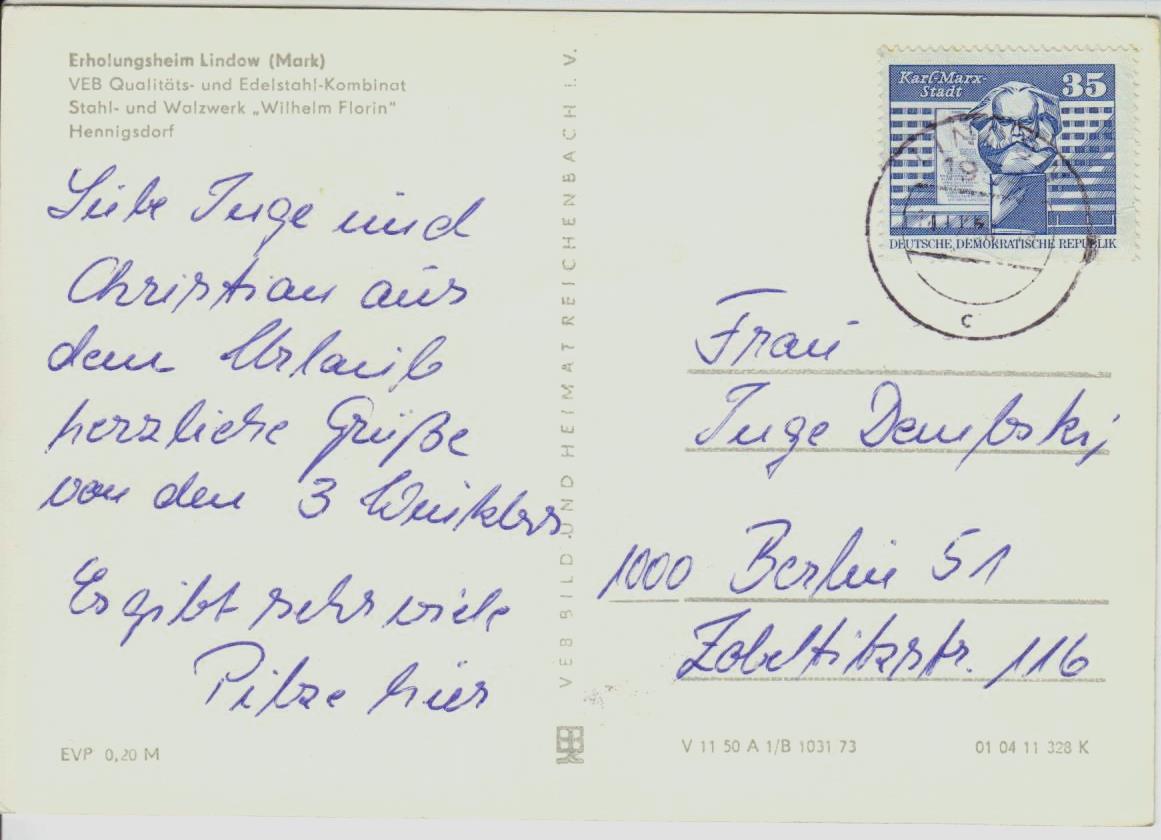 Erholungsheim Lindow (Mark)
VEB Qualitäts- und Edelstahl-Kombinat
Stahl- und Walzwerk „Wilhelm Florin“
Hennigsdorf
Liebe Inge und
Christian aus
dem Urlaub
herzliche Grüße
von den 3 Winklers
Es gibt sehr viele
Pilze hier
EVP 0,20 M
VEB BILD UND HEIMAT REICHENBACH I. V.
Karl-Marx-
Stadt
35
DEUTSCHE DEMOKRATISCHE REPUBLIK
19
c
Frau
Inge Dembski
1000 Berlin 51
Zobeltitzstr. 116
V 11 50 A 1/B 1031 73
01 04 11 328 K